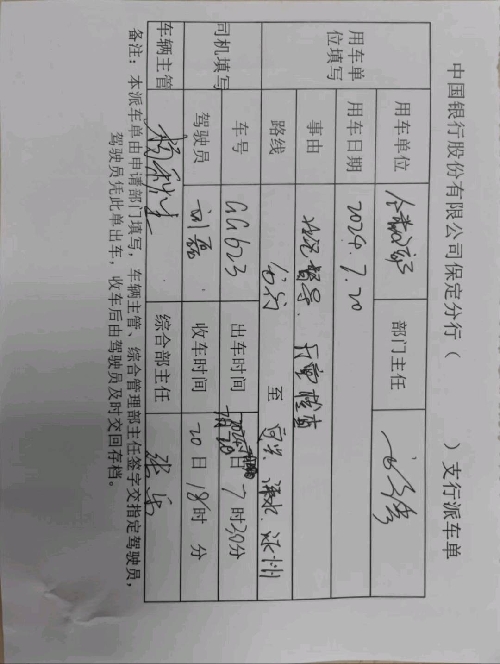 中国银行股份有限公司保定分行（　　　）支行派车单
用车单位填写 用车单位 部门主任
用车日期 2024.7.20
事由 督导、检查
路线 至 涿州
司机填写 车号 GG623 出车时间 20日7时30分
驾驶员 刘磊 收车时间 20日18时 分
车辆主管 综合部主任
备注：本派车单由申请部门填写，车辆主管、综合管理部主任签字交指定驾驶员，
驾驶员凭此单出车，收车后由驾驶员及时交回存档。